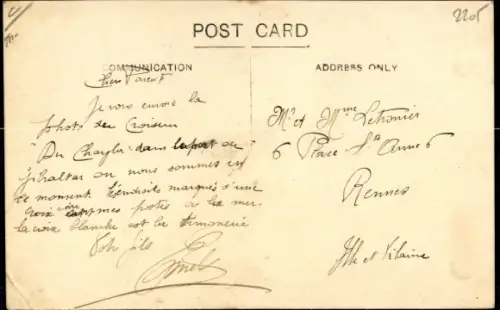 2205
POST CARD
COMMUNICATION
ADDRESS ONLY
Chers Parents
Je vous envoie la
photo du Croiseur
"Du Chayla" dans le port de
Gibraltar où nous sommes en
ce moment. L'endroit marqué d'une
croix est mes postes à la mer.
la croix blanche est la timonerie
Votre fils
Mr et Mme Letronier
6 Place Ste Anne 6
Rennes
Ille et Vilaine